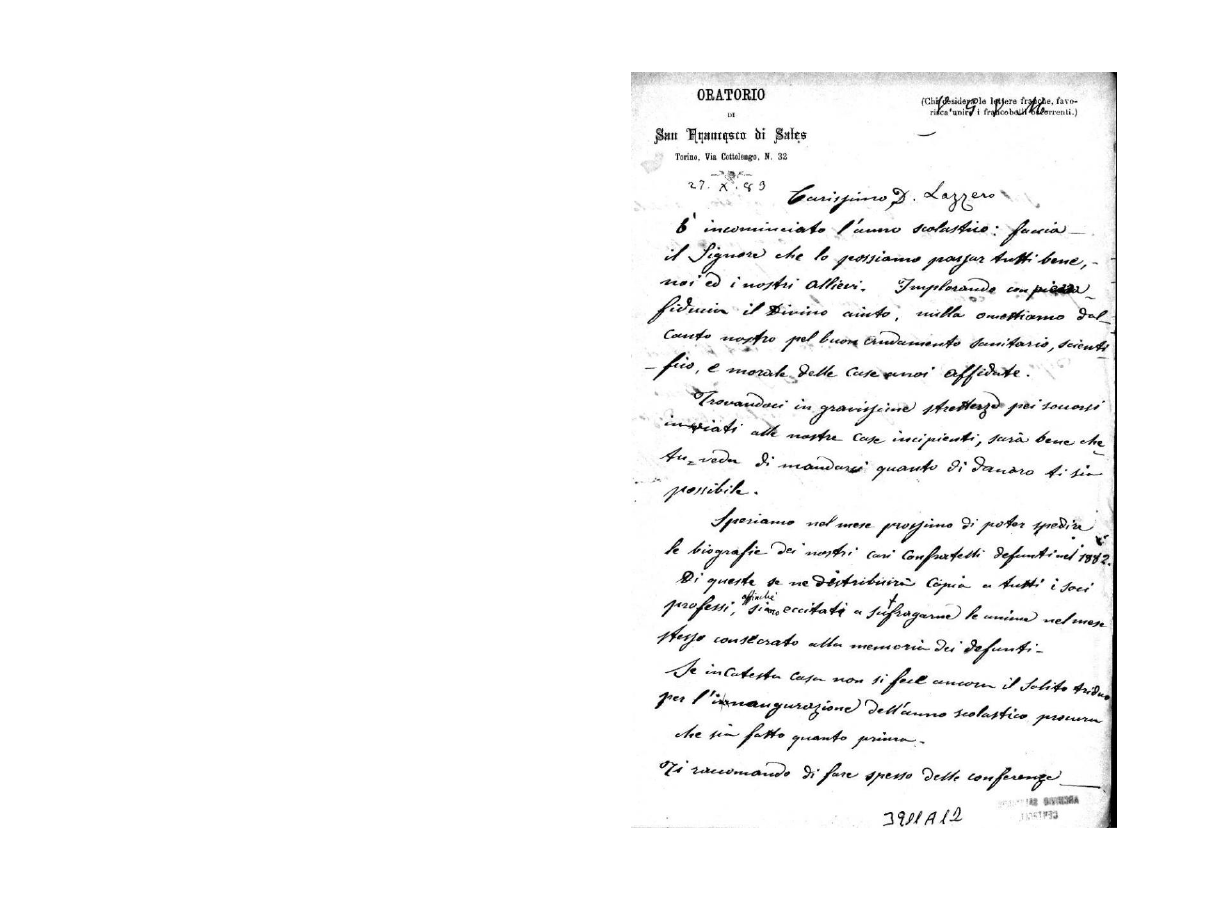 ORATORIO
DI
San Francesco di Sales
Torino, Via Cottolengo, N. 32
(Chi desidera le lettere franche, favo-
risca unire i francobolli occorrenti.)
V. G. V. M.
27. X. 83
Carissimo D. Lazzero
È incominciato l'anno scolastico: faccia
il Signore che lo possiamo passar tutti bene,
noi ed i nostri allievi. Implorando con piena
fiducia il Divino aiuto, nulla omettiamo dal
canto nostro pel buon andamento sanitario, scienti
-fico, e morale delle case a noi affidate.
Trovandoci in gravissime strettezze pei soccorsi
inviati alle nostre case incipienti, sarà bene che
tu veda di mandarci quanto di danaro ti sia
possibile.
Speriamo nel mese prossimo di poter spedire
le biografie dei nostri cari Confratelli defunti nel 1882.
Di queste se ne distribuirà copia a tutti i soci
professi, affinchè siano eccitati a suffragarne le anime nel mese
stesso consecrato alla memoria dei defunti-
Se in Catesta Casa non si fece ancora il solito triduo
per l'innaugurazione dell'anno scolastico procura
che sia fatto quanto prima.
Ti raccomando di fare spesso delle conferenze
39 A12
CENTRALE